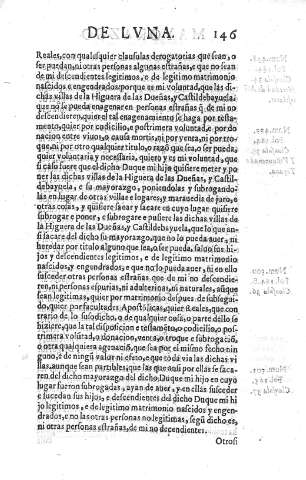 DE LVNA. 146
Reales, con qualesquier clausulas derogatorias que sean, o
ser puedan, ni otras personas algunas estrañas, e que no sean
de mi descendientes legitimos, e de legitimo matrimonio
nascidos e engendrados: porque es mi voluntad, que las di-
chas villas de la Higuera de las Dueñas, y Castildebayuela:
que no se pueda enagenar en personas estrañas q̃ de mi no de
descendieren, quier el tal enagenamiento se haga por testa-
mento, quier por codicilio, e postrimera voluntad, e por do-
nacion entre viuos, o causa mortis, ni por venta, ni por tro-
que, ni por otro qualquier titulo, o razõ que sea, o ser pueda,
quier voluntaria y necessaria, quiero y es mi voluntad, que
si caso fuere que el dicho Duque mi hijo quisiere meter y po-
ner las dichas villas de la Higuera de las Dueñas, y Castil-
debayuela, e su mayorazgo, poniendolas y subrogando-
las en lugar de otras villas e logares, y marauedis de juro, e
otras cosas, y quisiere sacar y sacare en cuyo lugar quisiere
subrogar e poner, e subrogare e pusiere las dichas villas de
la Higuera de las Dueñas, y Castildebayuela, que lo que an-
si sacare del dicho su mayorazgo, que no lo pueda auer, ni
heredar por titulo alguno que sea, o ser pueda, saluo sus hi-
jos y descendientes legitimos, e de legitimo matrimonio
nascidos, y engendrados; e que no lo pueda auer, ni en ello
succeder otras personas estrañas que de mi no descendie-
ren, ni personas espurias, ni adulterinas, ni naturales, aũque
sean legitimas, quier por matrimonio despues de subsegui-
do, quier por facultades Apostolicas, quier Reales, que con-
trario de lo susodicho, o de qualquier cosa, o parte dello se
hiziere, quo la tal disposicion e testamẽto, o codicilo, o pos-
trimera volũtad, o donacion, venta, o troque e subrogació,
o otra qualquiera agenació, que sea por el mismo fecho nin-
guna, e de ningũ valor ni efeto, e que todauia las dichas vi-
llas, aunque sean partibles; que las que ansi por ellas se saca-
ren del dicho mayorazgo del dicho Duque mi hijo en cuyo
lugar fueron subrogadas, ayan de auer, y en ellas succeder
e sucedan sus hijos, e descendientes del dicho Duque mi hi-
jo legitimos, e de legitimo matrimonio nascidos y engen-
drados, e no las otras personas no legitimas, segũ dicho es,
ni otras personas estrañas, de mi no descendientes.
Otrosi